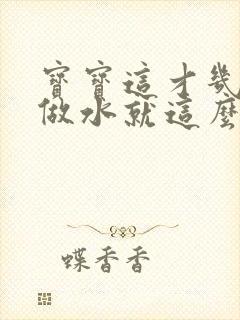 寶寶這才幾
做水就這麼
蝶香香